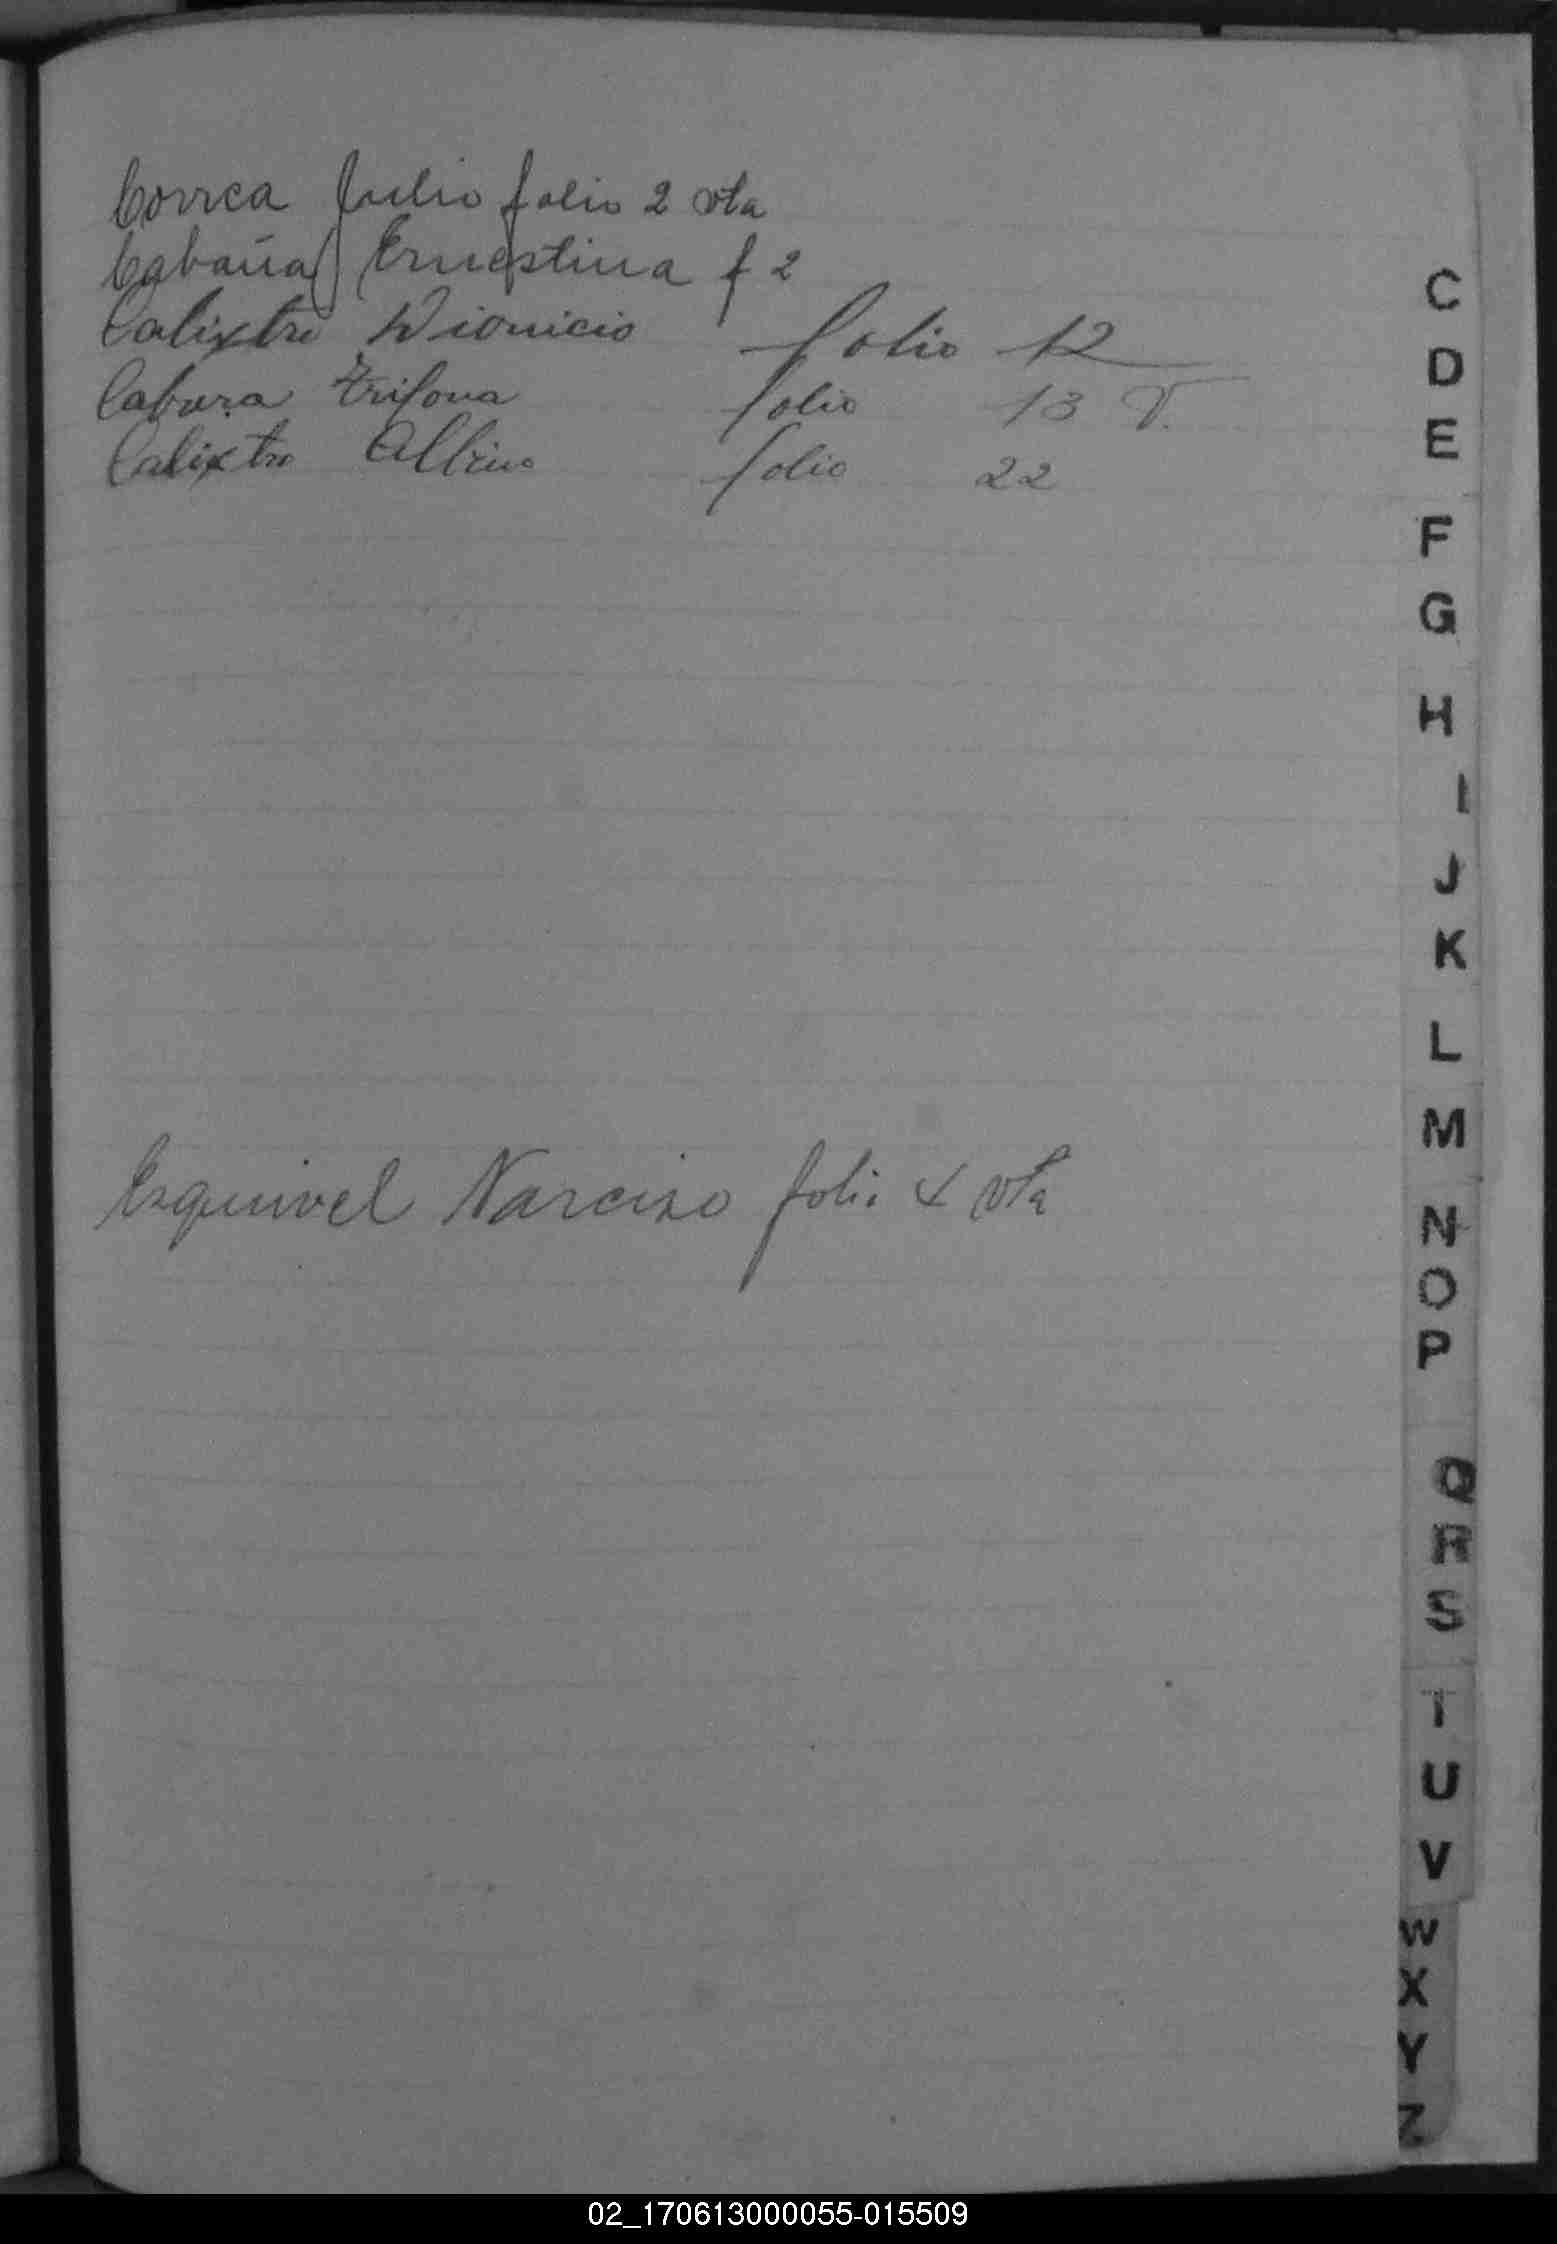 Correa Julio folio 2 vta
Cabaña Ernestina f 2
Calixtro Dionicio folio 12
Cabura Trifona folio 13 V.
Calixtro Albino folio 22
Esquivel Narciso folio 4 vta
C
D
E
F
G
H
I
J
K
L
M
N
O
P
Q
R
S
T
U
V
W
X
Y
Z
02_170613000055-015509